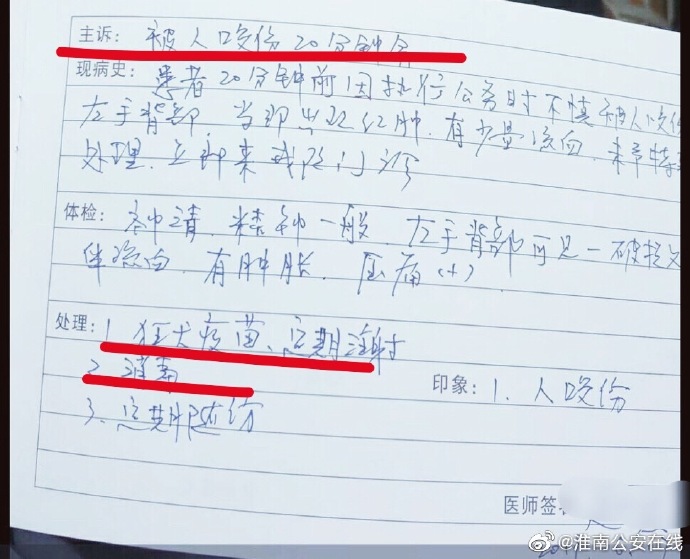 主诉: 被人咬伤20分钟余
现病史: 患者20分钟前因执行公务时不慎被人咬伤
左手背部,当即出现红肿,有少量流血,未予特
处理,立即来我院门诊
体检: 神清,精神一般,左手背部可见一破损
伴流血,有肿胀,压痛(+)
处理: 1、狂犬疫苗、定期注射
2、消毒
印象: 1、人咬伤
3、定期随访
医师签
@淮南公安在线